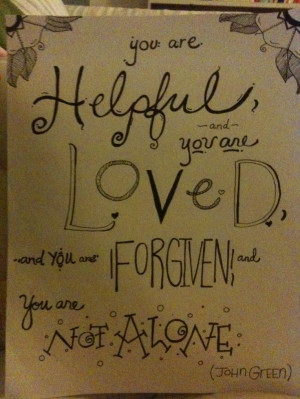 you are
Helpful,
-and-
you are
LOVeD,
-and YOU are ¡FORGIVEN! and
You are
NOT ALONE.
(JOHN GREEN)